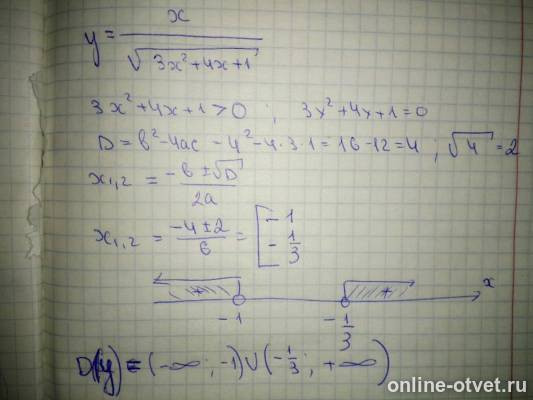 y = x / √(3x²+4x+1)
3x²+4x+1>0 ; 3x²+4x+1=0
D = b²-4ac - 4²-4·3·1 = 16-12=4 ; √4 = 2
x₁,₂ = (-b ± √D) / 2a
x₁,₂ = (-4±2) / 6 = [ -1
- 1/3
+ + x
-1 - 1/3
D(y) = (-∞ ; -1) ∪ (-1/3 ; +∞)
online-otvet.ru